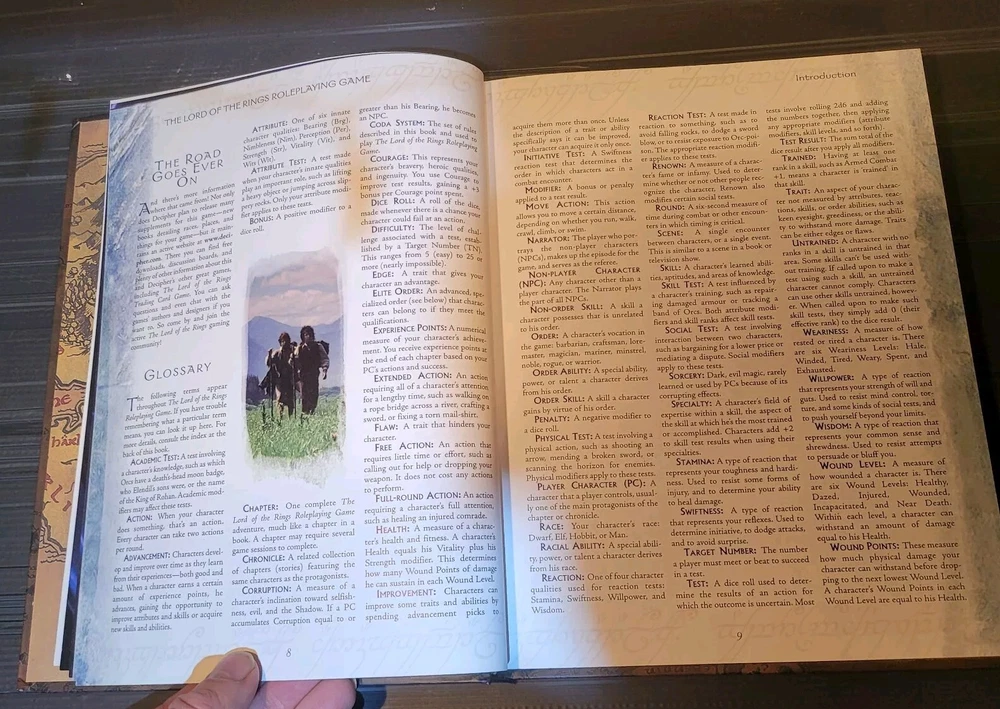 THE LORD OF THE RINGS ROLEPLAYING GAME
THE ROAD
GOES EVER
ON
And there's more information
where that came from! Not only
does Decipher plan to release many
supplements for this game—new
books detailing races, places, and
things for your game—but it main-
tains an active website at www.deci-
pher.com. There you can find free
downloads, discussion boards, and
plenty of other information about this
and Decipher's other great games,
including The Lord of the Rings
Trading Card Game. You can ask
questions and even chat with the
games' authors and designers if you
want to. So come by and join the
active The Lord of the Rings gaming
community!
GLOSSARY
The following terms appear
throughout The Lord of the Rings
Roleplaying Game. If you have trouble
remembering what a particular term
means, you can look it up here. For
more details, consult the index at the
back of this book.
ACADEMIC TEST: A test involving
a character's knowledge, such as which
Orcs have a death-head moon badge,
who Elendil's sons were, or the name
of the King of Rohan. Academic mod-
ifiers may affect these tests.
ACTION: When your character
does something, that's an action.
Every character can take two actions
per round.
ADVANCEMENT: Characters devel-
op and improve over time as they learn
from their experiences—both good and
bad. When a character earns a certain
amount of experience points, he
advances, gaining the opportunity to
improve attributes and skills or acquire
new skills and abilities.
ATTRIBUTE: One of six innate
character qualities: Bearing (Brg),
Nimbleness (Nim), Perception (Per),
Strength (Str), Vitality (Vit), and
Wits (Wit).
ATTRIBUTE TEST: A test made
when your character's innate qualities
play an important role, such as lifting
a heavy object or jumping across slip-
pery rocks. Only your attribute modi-
fier applies to these tests.
BONUS: A positive modifier to a
dice roll.
CHAPTER: One complete The
Lord of the Rings Roleplaying Game
adventure, much like a chapter in a
book. A chapter may require several
game sessions to complete.
CHRONICLE: A related collection
of chapters (stories) featuring the
same characters as the protagonists.
CORRUPTION: A measure of a
character's inclination toward selfish-
ness, evil, and the Shadow. If a PC
accumulates Corruption equal to or
greater than his Bearing, he becomes
an NPC.
CODA SYSTEM: The set of rules
described in this book and used to
play The Lord of the Rings Roleplaying
Game.
COURAGE: This represents your
character's bravery, heroic qualities,
and ingenuity. You use Courage to
improve test results, gaining a +3
bonus per Courage point spent.
DICE ROLL: A roll of the dice,
made whenever there is a chance your
character could fail at an action.
DIFFICULTY: The level of chal-
lenge associated with a test, estab-
lished by a Target Number (TN).
This ranges from 5 (easy) to 25 or
more (nearly impossible).
EDGE: A trait that gives your
character an advantage.
ELITE ORDER: An advanced, spe-
cialized order (see below) that charac-
ters can belong to if they meet the
qualifications.
EXPERIENCE POINTS: A numerical
measure of your character's achieve-
ment. You receive experience points at
the end of each chapter based on your
PC's actions and success.
EXTENDED ACTION: An action
requiring all of a character's attention
for a lengthy time, such as walking on
a rope bridge across a river, crafting a
sword, or fixing a torn mail-shirt.
FLAW: A trait that hinders your
character.
FREE ACTION: An action that
requires little time or effort, such as
calling out for help or dropping your
weapon. It does not cost any actions
to perform.
FULL-ROUND ACTION: An action
requiring a character's full attention,
such as healing an injured comrade.
HEALTH: A measure of a charac-
ter's health and fitness. A character's
Health equals his Vitality plus his
Strength modifier. This determines
how many Wound Points of damage
he can sustain in each Wound Level.
IMPROVEMENT: Characters can
improve some traits and abilities by
spending advancement picks to
8
Introduction
acquire them more than once. Unless
the description of a trait or ability
specifically says it can be improved,
your character can acquire it only once.
INITIATIVE TEST: A Swiftness
reaction test that determines the
order in which characters act in a
combat encounter.
MODIFIER: A bonus or penalty
applied to a test result.
MOVE ACTION: This action
allows you to move a certain distance,
depending on whether you run, walk,
crawl, climb, or swim.
NARRATOR: The player who por-
trays the non-player characters
(NPCs), makes up the episode for the
game, and serves as the referee.
NON-PLAYER CHARACTER
(NPC): Any character other than a
player character. The Narrator plays
the part of all NPCs.
NON-ORDER SKILL: A skill a
character possesses that is unrelated
to his order.
ORDER: A character's vocation in
the game: barbarian, craftsman, lore-
master, magician, mariner, minstrel,
noble, rogue, or warrior.
ORDER ABILITY: A special ability,
power, or talent a character derives
from his order.
ORDER SKILL: A skill a character
gains by virtue of his order.
PENALTY: A negative modifier to
a dice roll.
PHYSICAL TEST: A test involving a
physical action, such as shooting an
arrow, mending a broken sword, or
scanning the horizon for enemies.
Physical modifiers apply to these tests.
PLAYER CHARACTER (PC): A
character that a player controls, usual-
ly one of the main protagonists of the
chapter or chronicle.
RACE: Your character's race:
Dwarf, Elf, Hobbit, or Man.
RACIAL ABILITY: A special abili-
ty, power, or talent a character derives
from his race.
REACTION: One of four character
qualities used for reaction tests:
Stamina, Swiftness, Willpower, and
Wisdom.
REACTION TEST: A test made in
reaction to something, such as to
avoid falling rocks, to dodge a sword
blow, or to resist exposure to Orc-poi-
son. The appropriate reaction modifi-
er applies to these tests.
RENOWN: A measure of a charac-
ter's fame or infamy. Used to deter-
mine whether or not other people rec-
ognize the character. Renown also
modifies certain social tests.
ROUND: A six-second measure of
time during combat or other encoun-
ters in which timing is critical.
SCENE: A single encounter
between characters, or a single event.
This is similar to a scene in a book or
theatre.
SKILL: A character's learned abil-
ities, aptitudes, and areas of knowledge.
SKILL TEST: A test influenced by
a character's training, such as repair-
ing damaged armour or tracking a
band of Orcs. Both attribute modi-
fiers and skill ranks affect skill tests.
SOCIAL TEST: A test involving
interaction between two characters,
such as bargaining for a lower price or
mediating a dispute. Social modifiers
apply to these tests.
SORCERY: Dark, evil magic, rarely
learned or used by PCs because of its
corrupting effects.
SPECIALTY: A character's field of
expertise within a skill, the aspect of
the skill at which he's the most trained
or accomplished. Characters add +2
to skill test results when using their
specialties.
STAMINA: A type of reaction that
represents your toughness and hardi-
ness. Used to resist some forms of
injury, and to determine your ability
to heal damage.
SWIFTNESS: A type of reaction
that represents your reflexes. Used to
determine initiative, to dodge attacks,
and to avoid surprise.
TARGET NUMBER: The number
a player must meet or beat to succeed
in a test.
TEST: A dice roll used to deter-
mine the results of an action for
which the outcome is uncertain. Most
tests involve rolling 2d6 and adding
the numbers together, then applying
any appropriate modifiers (attribute
modifiers, skill levels, and so forth).
TEST RESULT: The sum total of the
dice result after you apply all modifiers.
TRAINED: Having at least one
rank in a skill, such as Armed Combat
+1, means a character is trained in
that skill.
TRAIT: An aspect of your charac-
ter not measured by attributes, reac-
tions, skills, or order abilities, such as
keen eyesight, greediness, or the abili-
ty to withstand more damage. Traits
can be either edges or flaws.
UNTRAINED: A character with no
ranks in a skill is untrained in that
area. Some skills can't be used with-
out training. If called upon to make a
test using such a skill, an untrained
character cannot comply. Characters
can use other skills untrained, howev-
er. When called upon to make such
skill tests, they simply add 0 (their
effective rank) to the dice result.
WEARINESS: A measure of how
rested or tired a character is. There
are six Weariness Levels: Hale,
Winded, Tired, Weary, Spent, and
Exhausted.
WILLPOWER: A type of reaction
that represents your strength of will and
guts. Used to resist mind control, tor-
ture, and some kinds of social tests, and
to push yourself beyond your limits.
WISDOM: A type of reaction that
represents your common sense and
shrewdness. Used to resist attempts
to persuade or bluff you.
WOUND LEVEL: A measure of
how wounded a character is. There
are six Wound Levels: Healthy,
Dazed, Injured, Wounded,
Incapacitated, and Near Death.
Within each level, a character can
withstand an amount of damage
equal to his Health.
WOUND POINTS: These measure
how much physical damage your
character can withstand before drop-
ping to the next lowest Wound Level.
A character's Wound Points in each
Wound Level are equal to his Health.
9